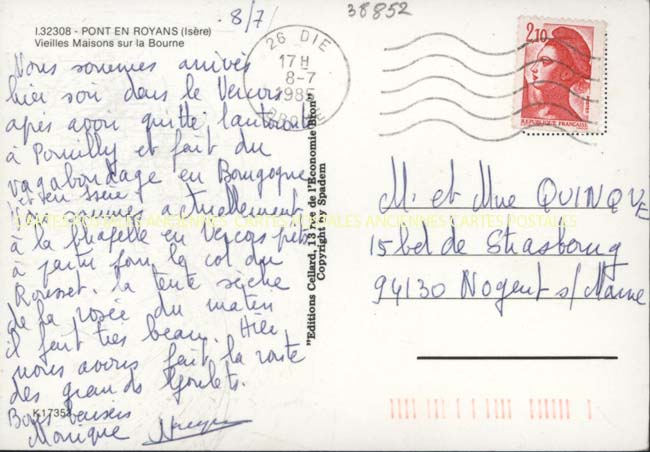 I.32308 - PONT EN ROYANS (Isère)
Vieilles Maisons sur la Bourne
8/7
38852
26 DIE
17 H
8-7
1985
DROME
2,10
REPUBLIQUE FRANÇAISE
Nous sommes arrivés
hier soir dans le Vercors
après avoir quitté l'autoroute
à Pouilly et fait du
vagabondage en Bourgogne
et en Isère
Nous sommes actuellement
à la Chapelle en Vercors prêts
à partir pour le col du
Rousset. la tente sèche
de la rosée du matin
il fait très beau. Hier
nous avons fait la route
des grands Goulets.
Bons baisers
Monique
K17352
"Editions Cellard, 13 rue de l'Economie Bron"
Copyright by Spadem
M. et Mme QUINQUE
15 bd de Strasbourg
94130 Nogent s/Marne
CARTES POSTALES ANCIENNES CARTES POSTALES ANCIENNES CARTES POSTALES